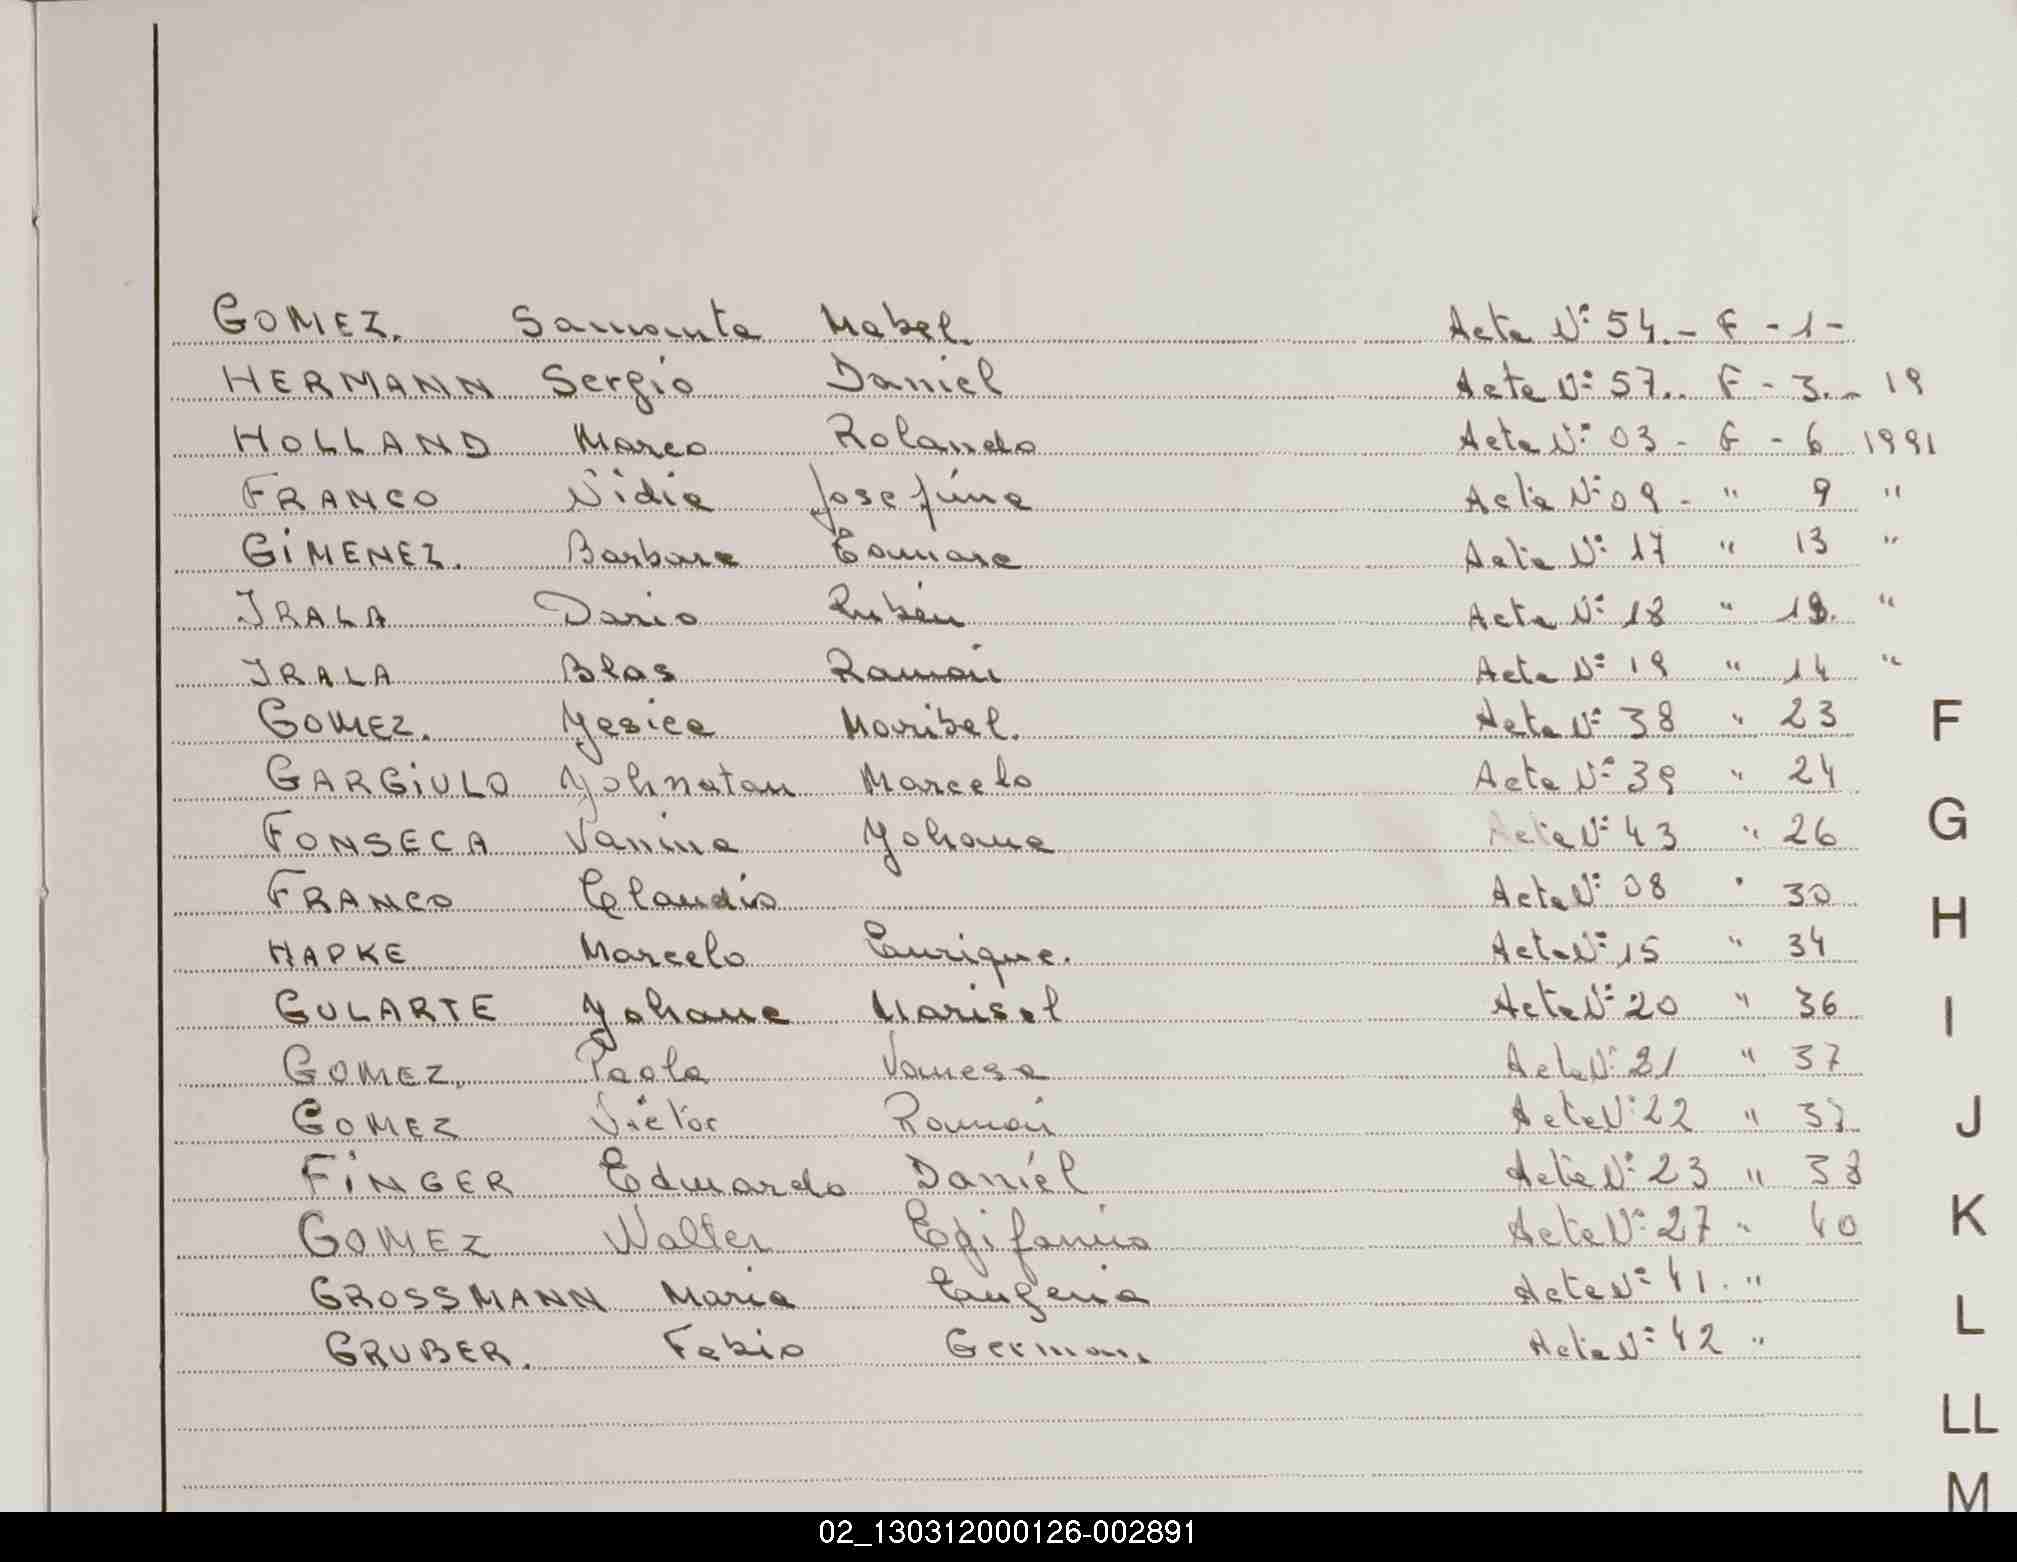 GOMEZ. Samanta Mabel. Acta Nº 54.- F - 1 -
HERMANN Sergio Daniel Acta Nº 57.. F - 3.- 19
HOLLAND Marco Rolando Acta Nº 03 - F - 6 1991
FRANCO Nidia Josefina Acta Nº 09 - " 9 "
GIMENEZ. Barbara Tamara Acta Nº 17 " 13 "
IRALA Dario Rubén Acta Nº 18 " 13. "
IRALA Blas Ramón Acta Nº 19 " 14 "
GOMEZ. Yesica Marisel. Acta Nº 38 " 23
GARGIULO Yohnatan Marcelo Acta Nº 39 " 24
FONSECA Vanina Yohana Acta Nº 43 " 26
FRANCO Claudio Acta Nº 08 " 30
HAPKE Marcelo Enrique. Acta Nº 15 " 34
GULARTE Yohana Marisol Acta Nº 20 " 36
GOMEZ. Paola Vanesa Acta Nº 21 " 37
GOMEZ Victor Ramón Acta Nº 22 " 37
FINGER Eduardo Daniél Acta Nº 23 " 38
GOMEZ Walter Epifanio Acta Nº 27 " 40
GROSSMANN Maria Eugenia Acta Nº 41. "
GRUBER. Fabio German. Acta Nº 42 "
F
G
H
I
J
K
L
LL
M
02_130312000126-002891